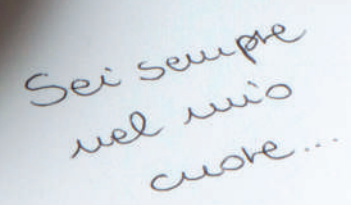 Sei sempre
nel mio
cuore...